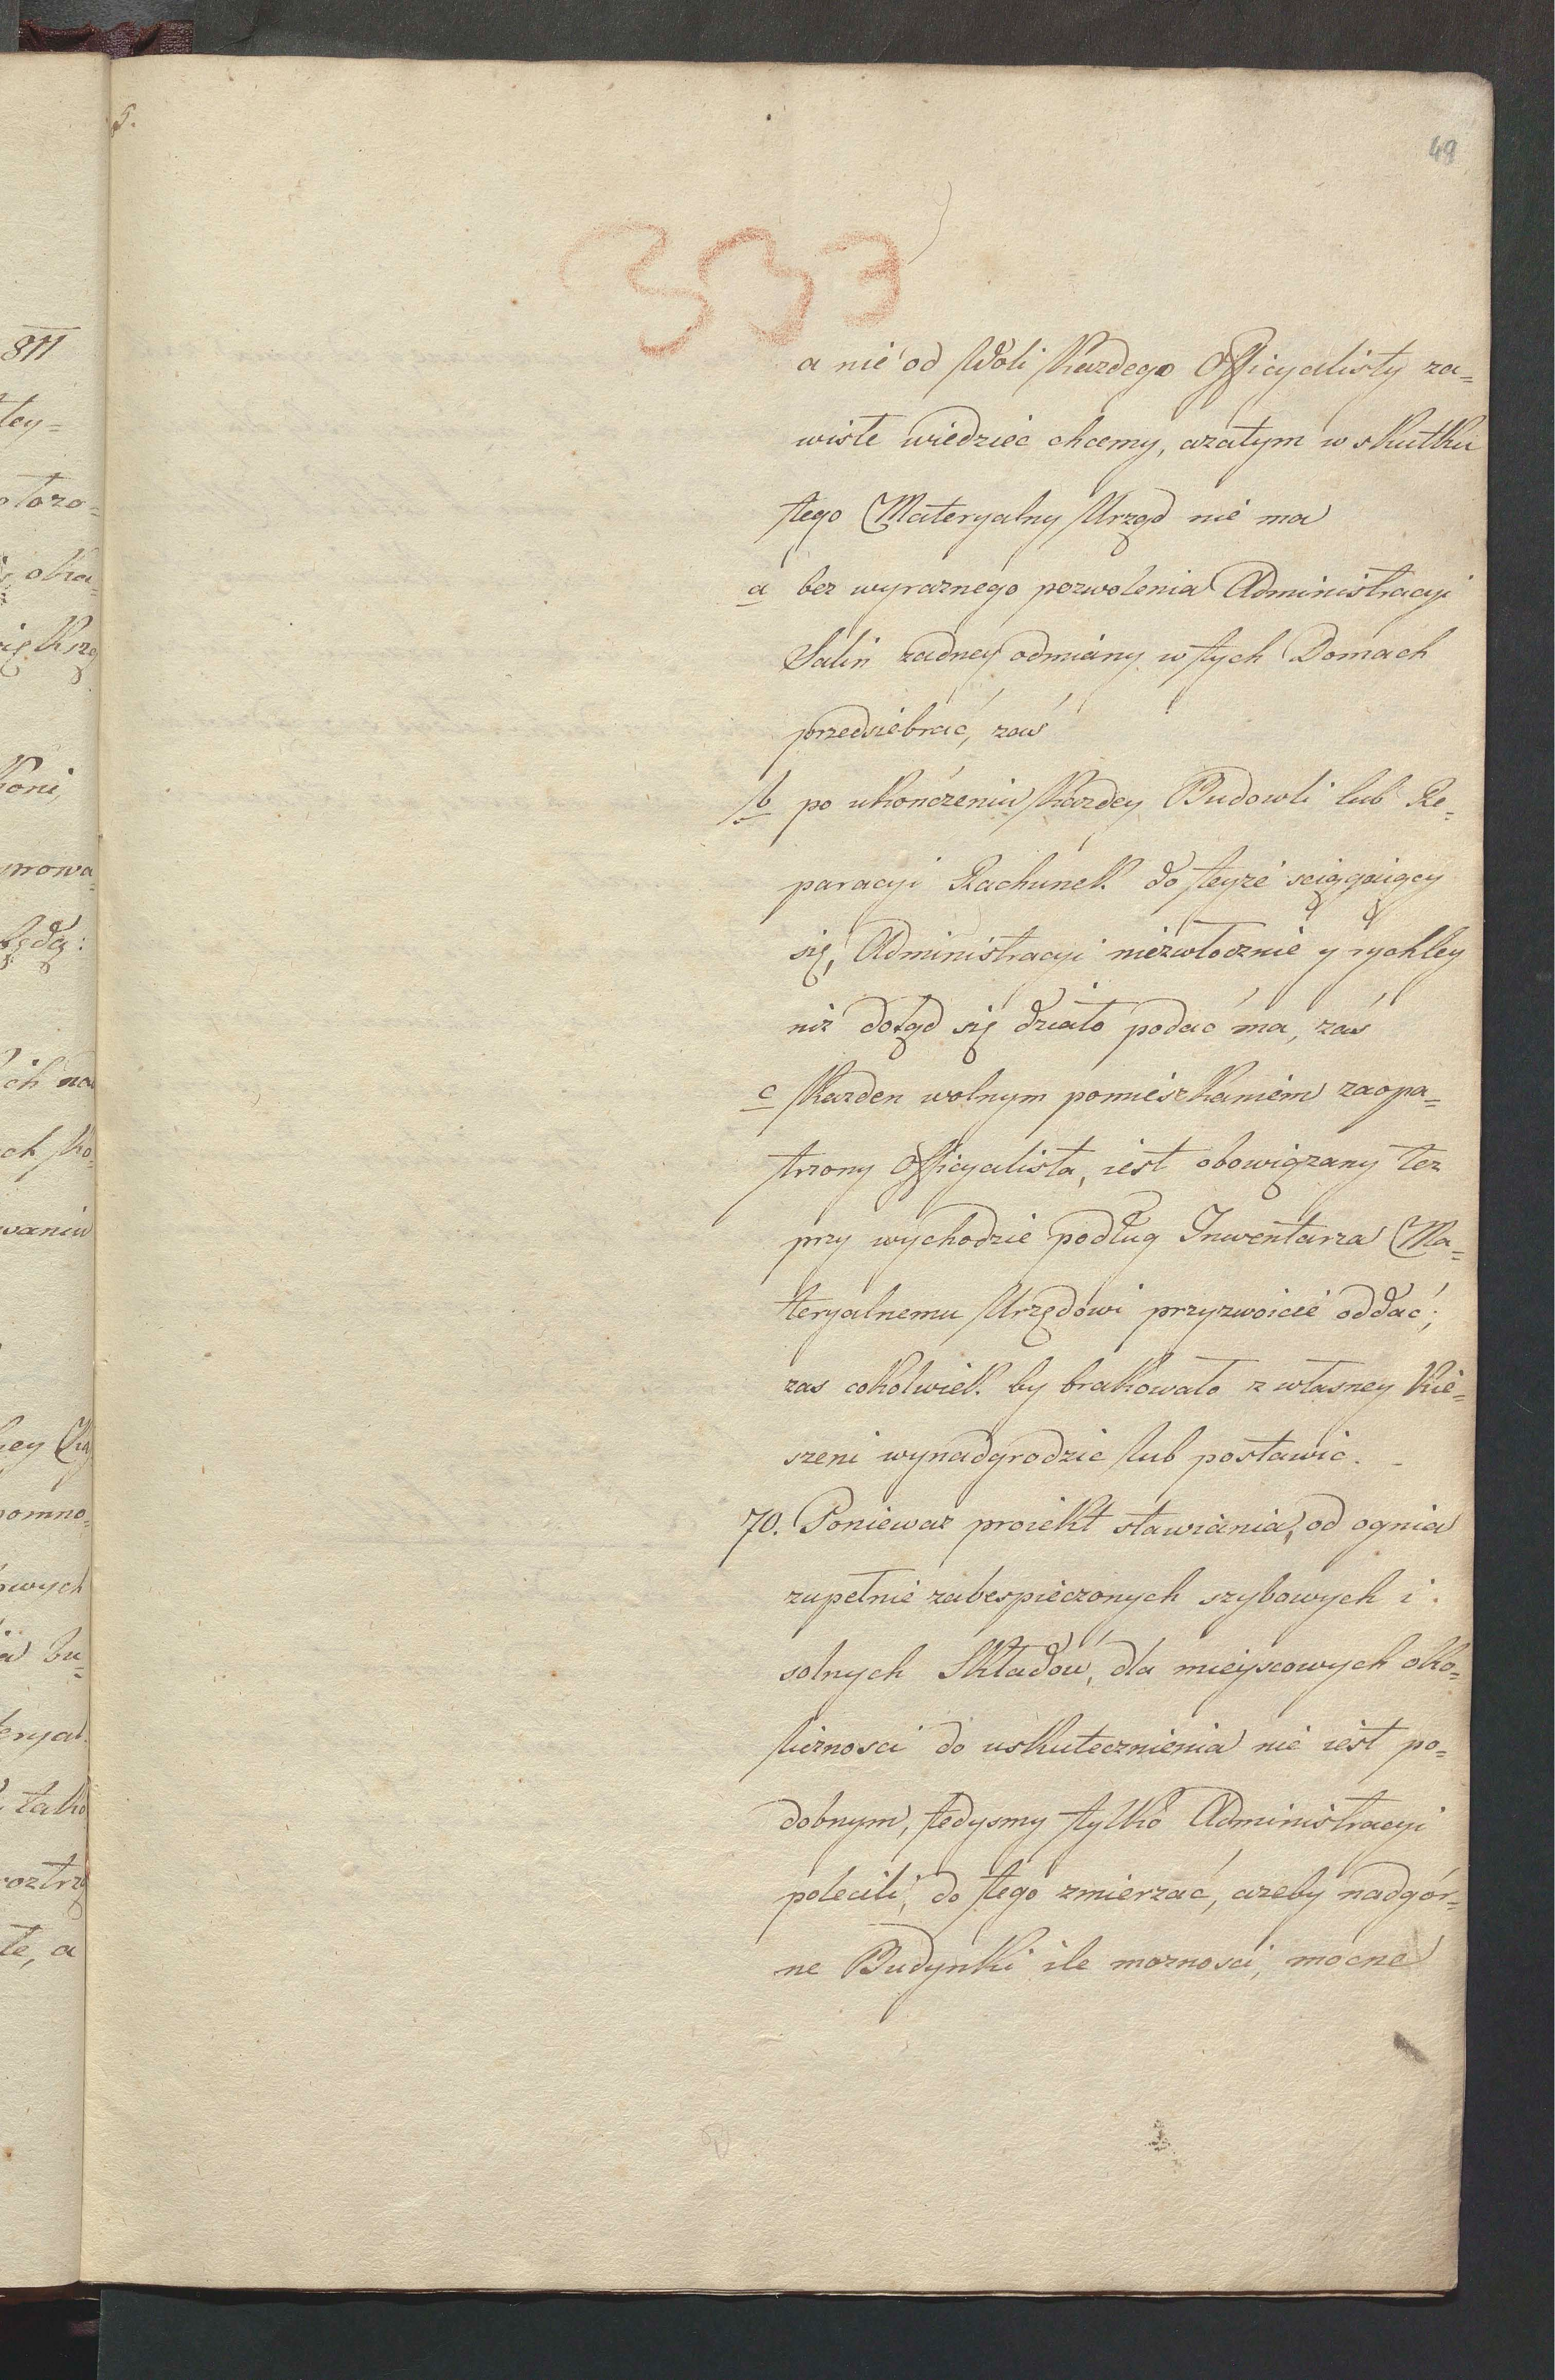 49
a nie od Woli Kazdego Officyalisty za=
wisłe wiedzieć chcemy, azatym w skutku
tego Materyalny Urząd nie ma
a bez wyraznego pozwolenia Administracyi
Salin zadney odmiany w tych Domach
przedsiebrać, zaś
b po ukończeniu Kazdey Budowli lub Re=
paracyi Rachunek do teyze sciągaiący
się, Administracyi niezwłocznie y rychley
niz dotąd się działo podać ma, zaś
c Kazden wolnym pomieszkaniem zaopa=
trzony Officyalista, iest obowiązany tez
przy wychodzie podług Inwentarza Ma=
teryalnemu Urzędowi przyzwoicie oddać;
zas cokolwiek by brakowało z własney Kie=
szeni wynadgrodzic lub postawic.
70. Poniewaz proiekt stawiania, od ognia
zupełnie zabespieczonych szybowych i
solnych Składów, dla mieyscowych oko=
licznosci do uskutecznienia nie iest po=
dobnym, tedysmy tylko Administracyi
polecili, do tego zmierzać, azeby nadgór=
ne Budynki ile moznosci, mocne